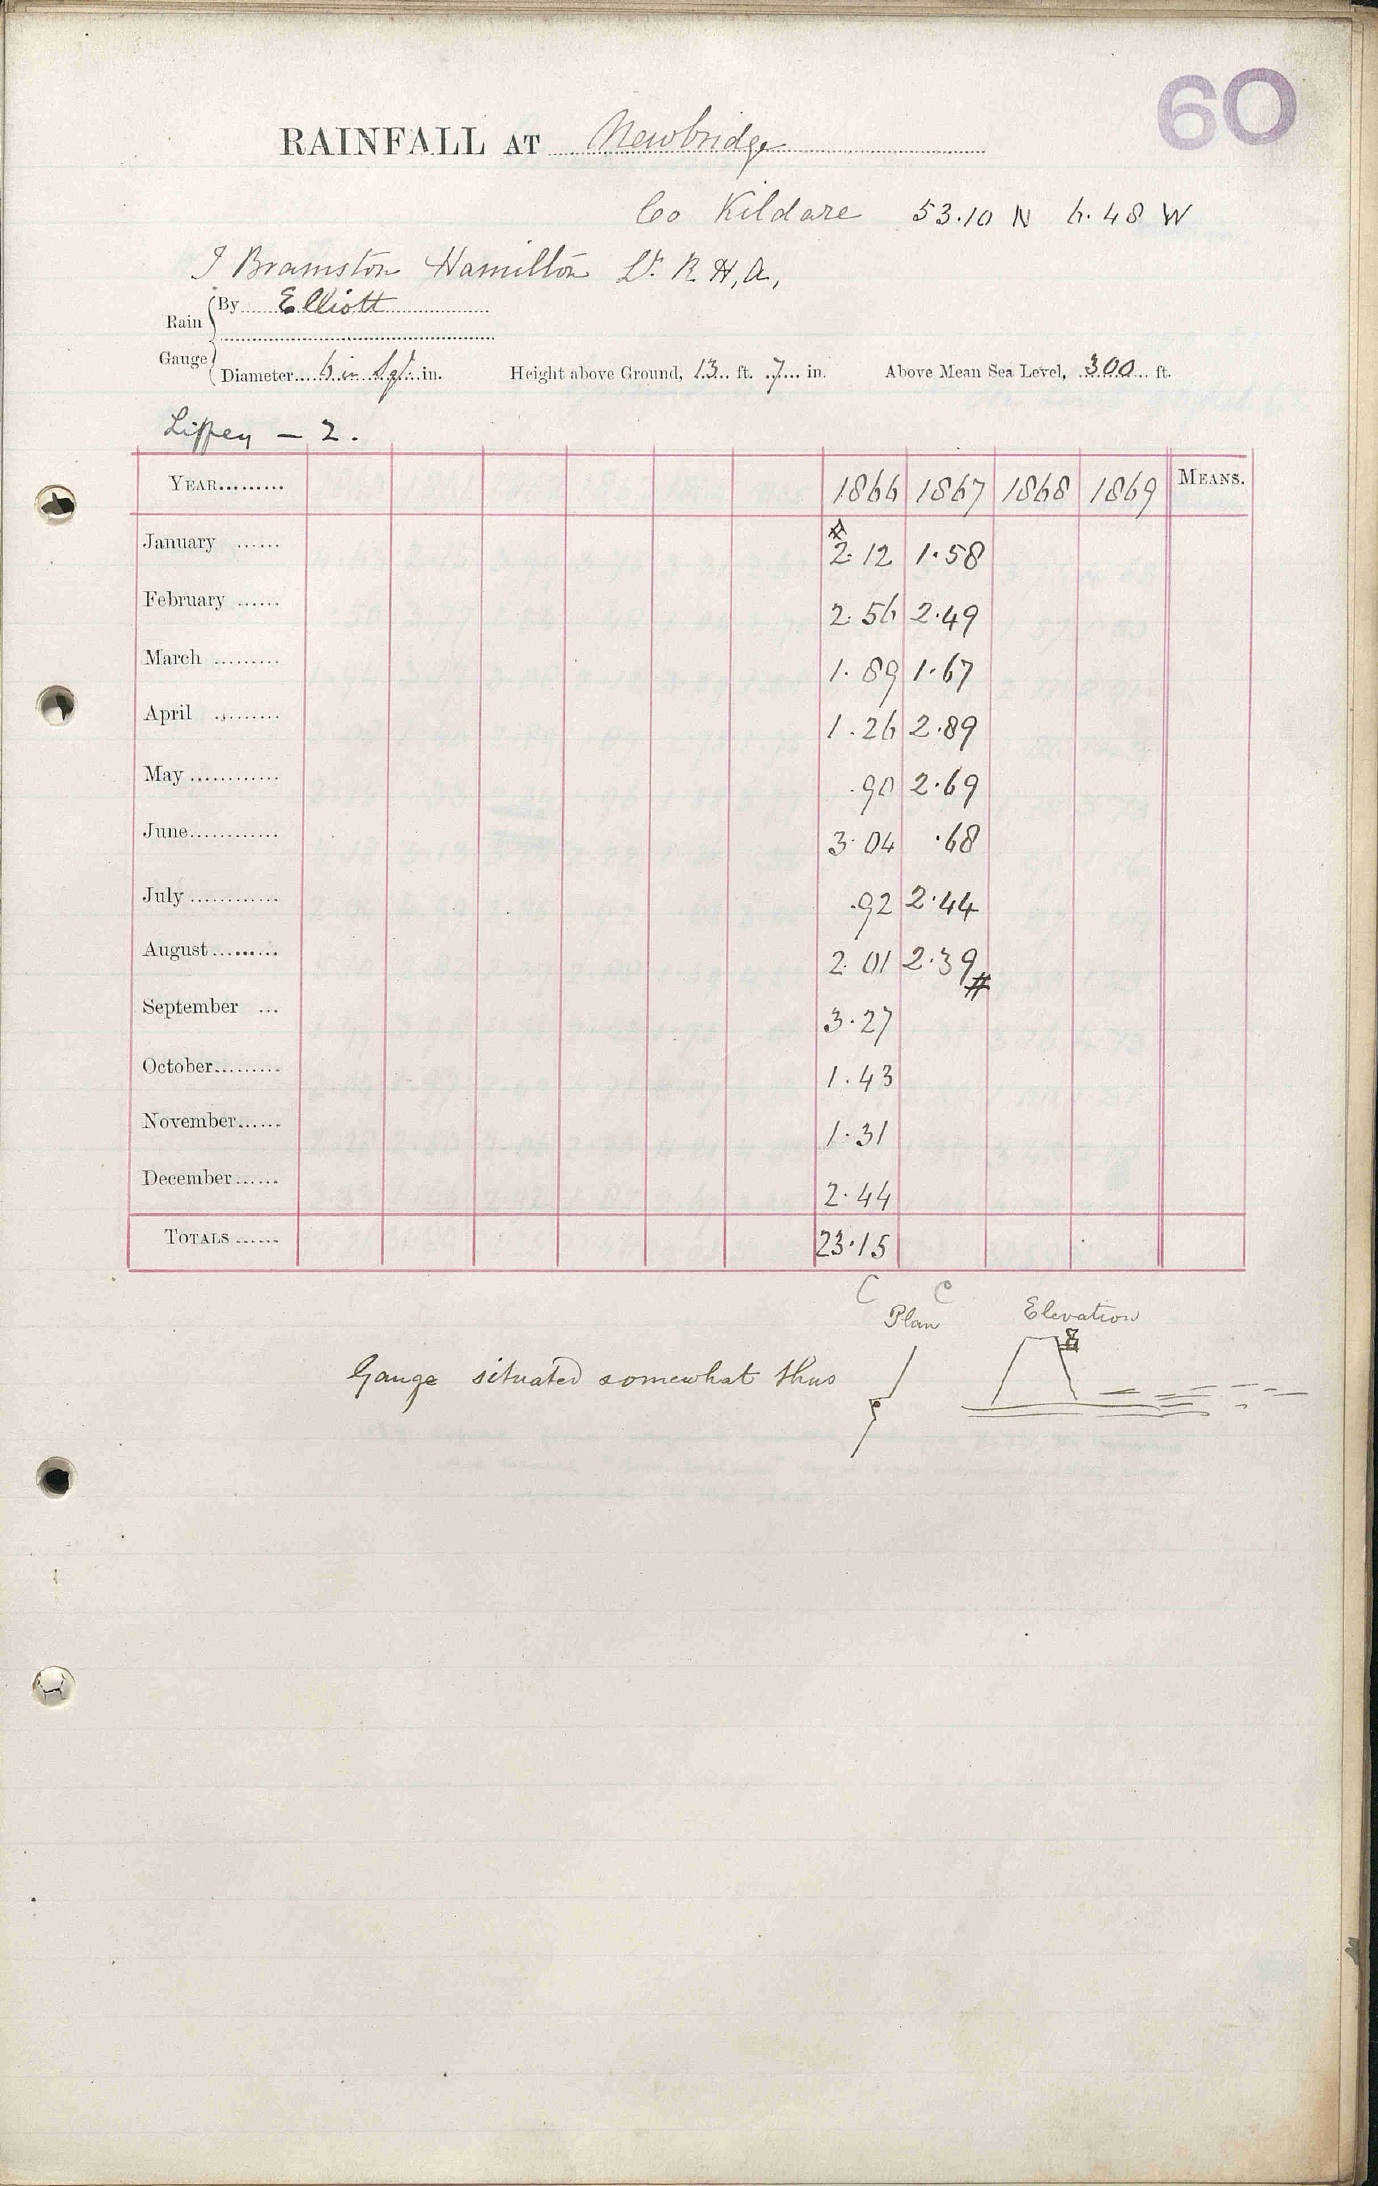 60
RAINFALL AT Newbridge
Co Kildare 53.10 N 6.48 W
J Bramston Hamilton Lt. R. H. A.
Rain Gauge By Elliott
Diameter 6 in Sq. in. Height above Ground, 13 ft. 7 in. Above Mean Sea Level, 300 ft.
Liffey — 2.
YEAR 1866 1867 1868 1869 MEANS.
January # 2.12 1.58
February 2.56 2.49
March 1.89 1.67
April 1.26 2.89
May .90 2.69
June 3.04 .68
July .92 2.44
August 2.01 2.39 #
September 3.27
October 1.43
November 1.31
December 2.44
TOTALS 23.15
C C
Plan Elevation
Gauge situated somewhat thus